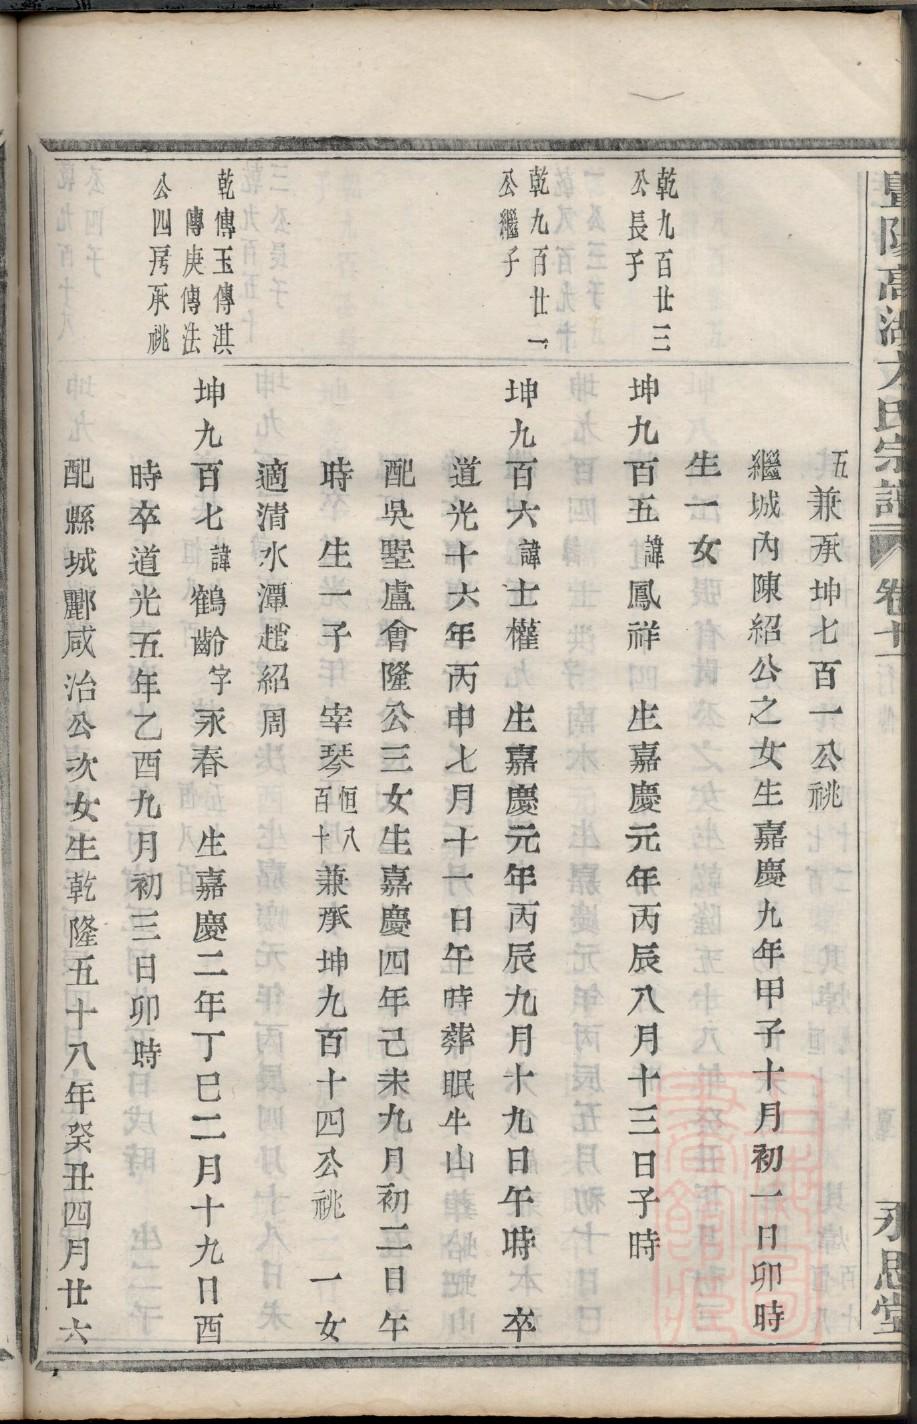 暨陽高湖方氏宗譜 卷十一 永思堂
五兼承坤七百一公祧
繼城內陳紹公之女生嘉慶九年甲子十月初一日卯時
生一女
乾九百廿三
公長子
坤九百五諱鳳祥 生嘉慶元年丙辰八月十三日子時
乾九百廿一
公繼子
坤九百六諱士權 生嘉慶元年丙辰九月十九日午時 卒
道光十六年丙申七月十一日午時葬眠牛山
配吳墅盧會隆公三女生嘉慶四年己未九月初二日午
時 生一子 宰琴恒八百十兼承坤九百十四公祧 一女
適清水潭趙紹周
乾傳玉傳淇
傳庚傳法
公四房承祧
坤九百七諱鶴齡字永春 生嘉慶二年丁巳二月十九日酉
時卒道光五年乙酉九月初三日卯時
配縣城酈咸治公次女生乾隆五十八年癸丑四月廿六